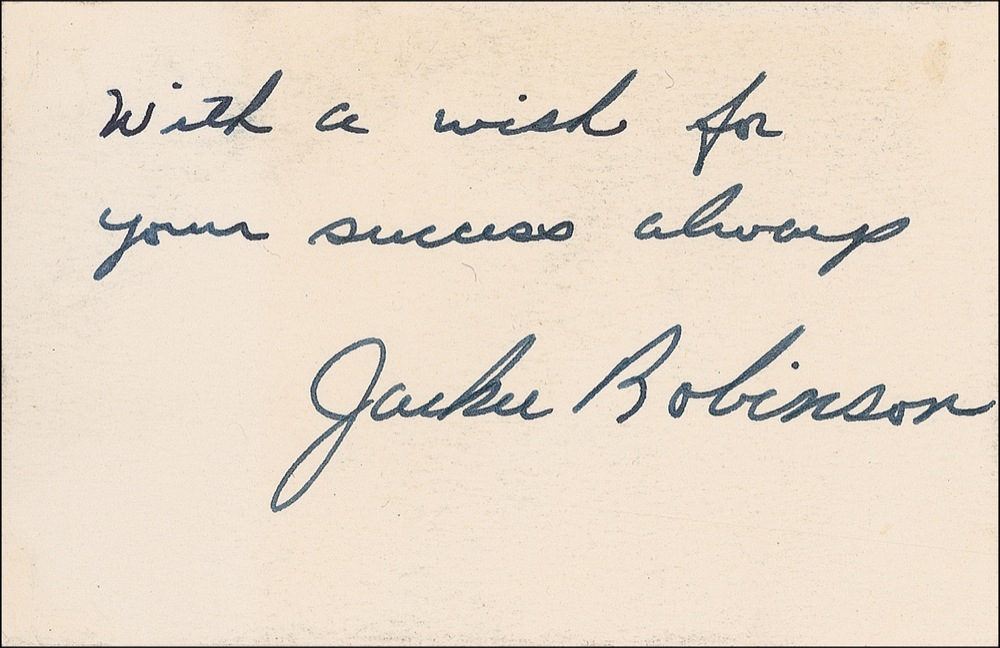 With a wish for
your success always
Jackie Robinson